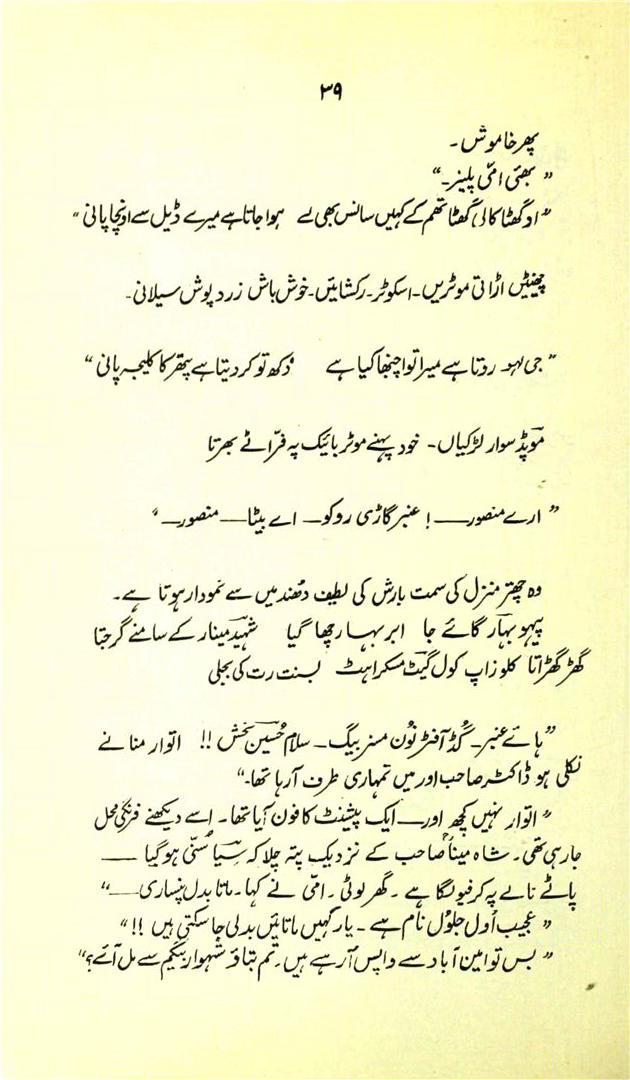 ۳۹
پھر خاموش۔
”بھئی امّی پلیز۔“
”اودگھٹا کالی گھٹا تھم کے کہیں سانس بھی لے ہوا جاتا ہے میرے ڈیل سے اونچا پانی“
چھینٹیں اڑاتی موٹریں۔ اسکوٹر۔ رکشائیں۔ خوش باش زرد پوش سیلانی۔
”جی لہو روتا ہے میرا تو اچنبھا کیا ہے دُکھ تو کر دیتا ہے پتھر کا کلیجہ پانی“
موپڈ سوار لڑکیاں۔ خود پہنے موٹر بائیک پہ فرّاٹے بھرتا
”ارے منصور——! عنبر گاڑی روکو— اے بیٹا— منصور—“
وہ چھتر منزل کی سمت بارش کی لطیف دھُند میں سے نمودار ہوتا ہے۔
پیہو بہار گائے جا ابر بہار چھا گیا شہید مینار کے سامنے گرجتا
گھڑگھڑاتا کلوز اپ کول گیٹ مسکراہٹ بسنت رت کی بجلی
”ہائے عنبر۔ گُڈ آفٹر نُون مسز بیگ۔ سلام حُسین بخش !! اتوار منانے
نکلی ہو ڈاکٹر صاحب اور میں تمہاری طرف آرہا تھا۔“
”اتوار نہیں کچھ اور— ایک پیشنٹ کا فون آیا تھا۔ اسے دیکھنے فرنگی محل
جا رہی تھی۔ شاہ میناؒ صاحب کے نزدیک پتہ چلا کہ شیعا سُنّی ہو گیا ——
پاٹے نالے پہ کرفیو لگا ہے۔ گھر لوٹی۔ امّی نے کہا۔ ماتا بدل پنساری——“
”عجیب اُول جلُول نام ہے۔ یار کہیں ماتائیں بدلی جا سکتی ہیں !!“
”بس تو امین آباد سے واپس آرہے ہیں۔ تم بتاؤ شہوار بیگم سے مل آئے؟“